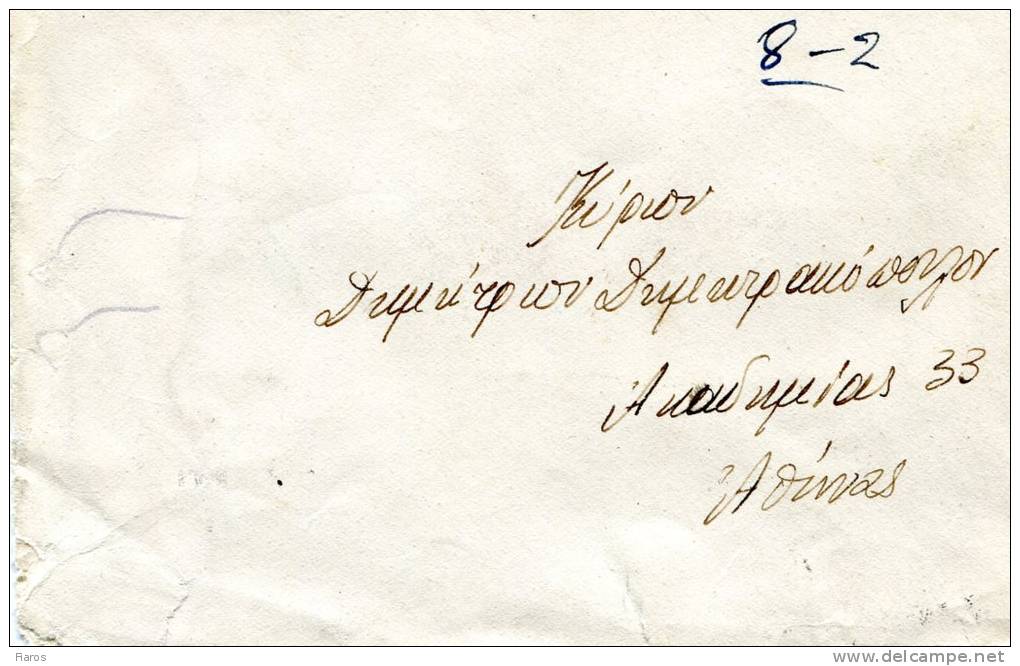 8-2
Κύριον
Δημήτριον Δημητρακόπουλον
Ἀκαδημίας 33
Ἀθήνας
Raros
www.delcampe.net